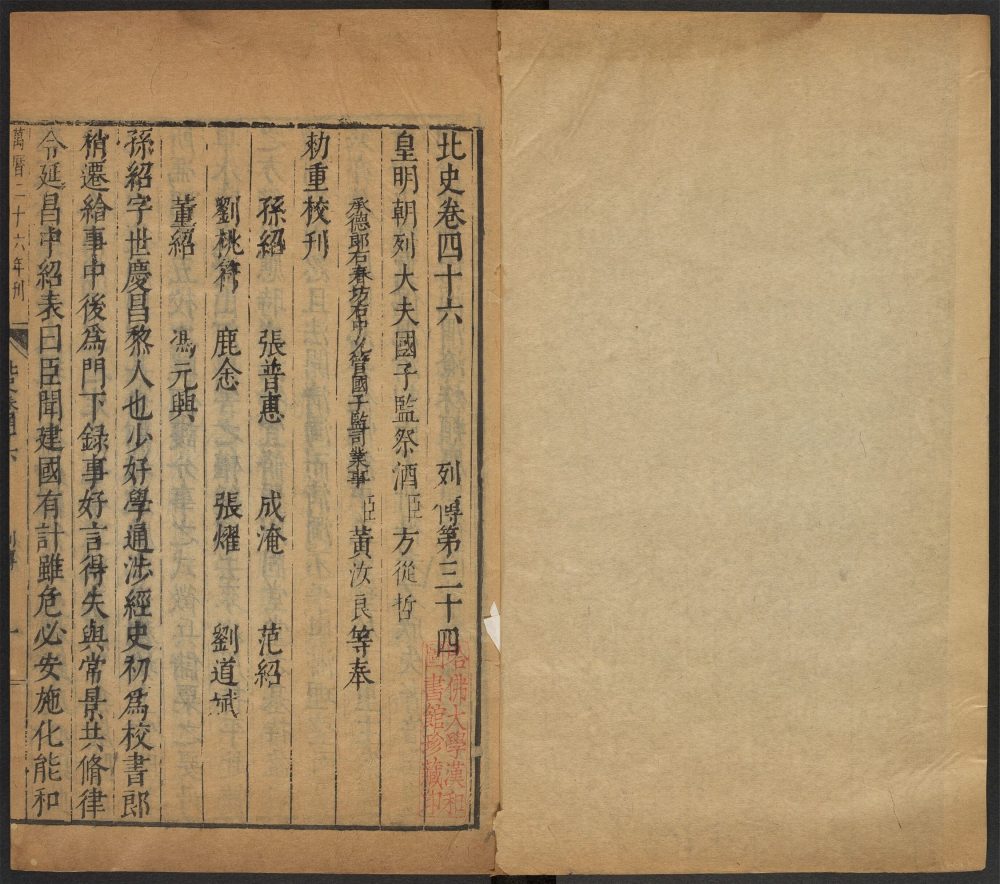 北史卷四十六 列傳第三十四
皇明朝列大夫國子監祭酒臣方從哲
承德郎右春坊右中允管國子監司業事臣黃汝良等奉
勑重校刊
孫紹 張普惠 成淹 范紹
劉桃符 鹿悆 張燿 劉道斌
董紹 馮元興
孫紹字世慶昌黎人也少好學通涉經史初爲校書郎
稍遷給事中後爲門下録事好言得失與常景共脩律
令延昌中紹表曰臣聞建國有計雖危必安施化能和
萬曆二十六年刊
北史卷四十六
列傳
一
哈佛大學漢和
圖書館珍藏印